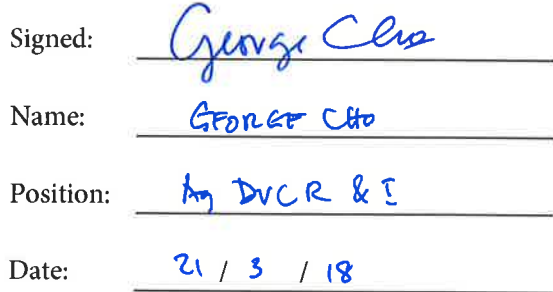 Signed: George Cho
Name: GEORGE CHO
Position: Ag DVCR & I
Date: 21 / 3 / 18